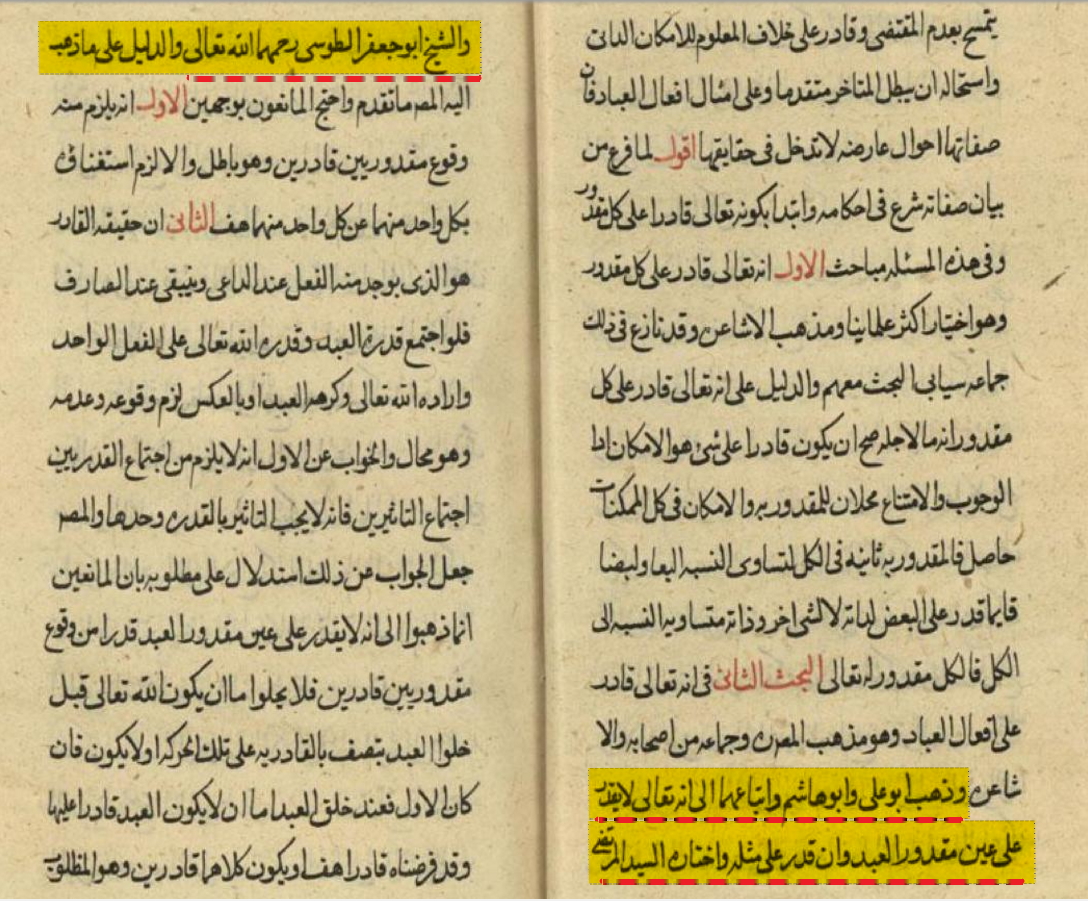 يتمسح بعدم المقتضى وقادر على خلاف المعلوم للامكان الذاتى
واستحاله ان يبطل المتاخر متقدما وعلى امثال افعال العباد فان
صفاتها احوال عارضه لا تدخل فى حقايقها اقول لما فرغ من
بيان صفاته شرع فى احكامه وابتدا بكونه تعالى قادرا على كل مقدور
وفى هذه المسئله مباحث الاول انه تعالى قادر على كل مقدور
وهو اختيار اكثر علماينا ومذهب الاشاعره وقد نازع فى ذلك
جماعه سياتى البحث معهم والدليل على انه تعالى قادر على كل
مقدور انه ما لاجله صح ان يكون قادرا على شئ هو الامكان اذا
الوجوب والامتناع محلان للمقدوريه والامكان فى كل الممكنات
حاصل فالمقدوريه ثانيه فى الكل لتساوى النسبه ايضا
فايما قدر على البعض لذاته لا لشئ اخر وذاته متساويه النسبه الى
الكل فالكل مقدور له تعالى البحث الثانى فى انه تعالى قادر
على افعال العباد وهو مذهب المصره وجماعه من اصحابه والا
شاعره وذهب ابو على وابو هاشم واتباعهما الى انه تعالى لا يقدر
على عين مقدور العبد وان قدر على مثله واختاره السيد المرتضى
والشيخ ابو جعفر الطوسى رحمهما الله تعالى والدليل على ما ذهب
اليه المصر ما تقدم واحتج المانعون بوجهين الاول انه يلزم منه
وقوع مقدور بين قادرين وهو باطل والا لزم استغناؤه
بكل واحد منهما عن كل واحد منهما هف الثانى ان حقيقه القادر
هو الذى يوجد منه الفعل عند الداعى وينتفى عند الصارف
فلو اجتمع قدرة العبد وقدره الله تعالى على الفعل الواحد
واراده الله تعالى وكرهه العبد او بالعكس لزم وقوعه وعدمه
وهو محال والجواب عن الاول انه لا يلزم من اجتماع القدرتين
اجتماع التاثيرين فانه لا يجب التاثير بالقدره وحدها والمصر
جعل الجواب عن ذلك استدلال على مطلوبه بان المانعين
انما ذهبوا الى انه لا يقدر على عين مقدور العبد فرارا من وقوع
مقدور بين قادرين فلا يخلوا ما ان يكون الله تعالى قبل
خلوا العبد يتصف بالقادريه على تلك الحركه او لا يكون فان
كان الاول فعند خلق العبد اما ان لا يكون العبد قادرا عليها
وقد فرضناه قادرا هف او يكون كلاهما قادرين وهو المطلوب